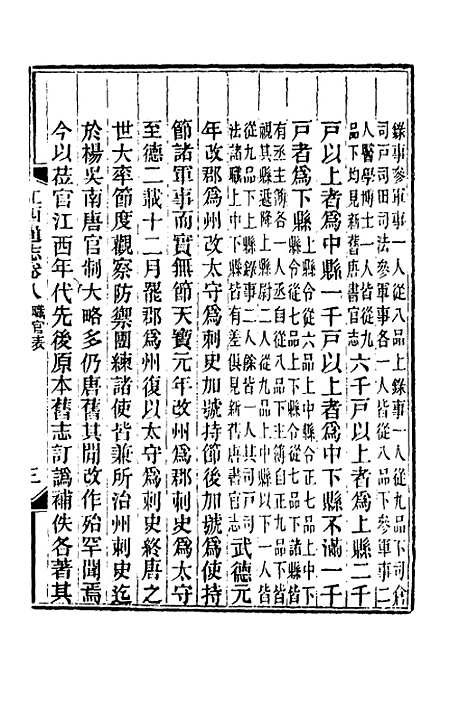 錄事參軍事一人從八品上錄事一人從九品下司倉
司戶司田司法參軍事各一人皆從八品下參軍事二
人醫學博士一人皆從九
品下均見新舊唐書官志
六千戶以上者爲上縣二千
戶以上者爲中縣一千戶以上者爲中下縣不滿一千
戶者爲下縣
上縣令從六品上中縣令正七品上中下
縣令從七品上下縣令從七品下諸縣皆
有丞主簿各一人丞自從八品下主簿自正九品下
視其縣遞降縣尉二人從九品上中縣以下一人皆
從九品下上縣錄事二人餘皆一人其司戶司
法諸職上中下縣皆有差俱見新舊唐書官志
武德元
年改郡爲州改太守爲刺史加號持節後加號爲使持
節諸軍事而實無節天寶元年改州爲郡刺史爲太守
至德二載十二月罷郡爲州復以太守爲刺史終唐之
世大率節度觀察防禦團練諸使皆兼所治州刺史迄
於楊吳南唐官制大略多仍唐舊其閒改作殆罕聞焉
今以莅官江西年代先後原本舊志訂譌補佚各著其
江西通志卷八 職官表
三